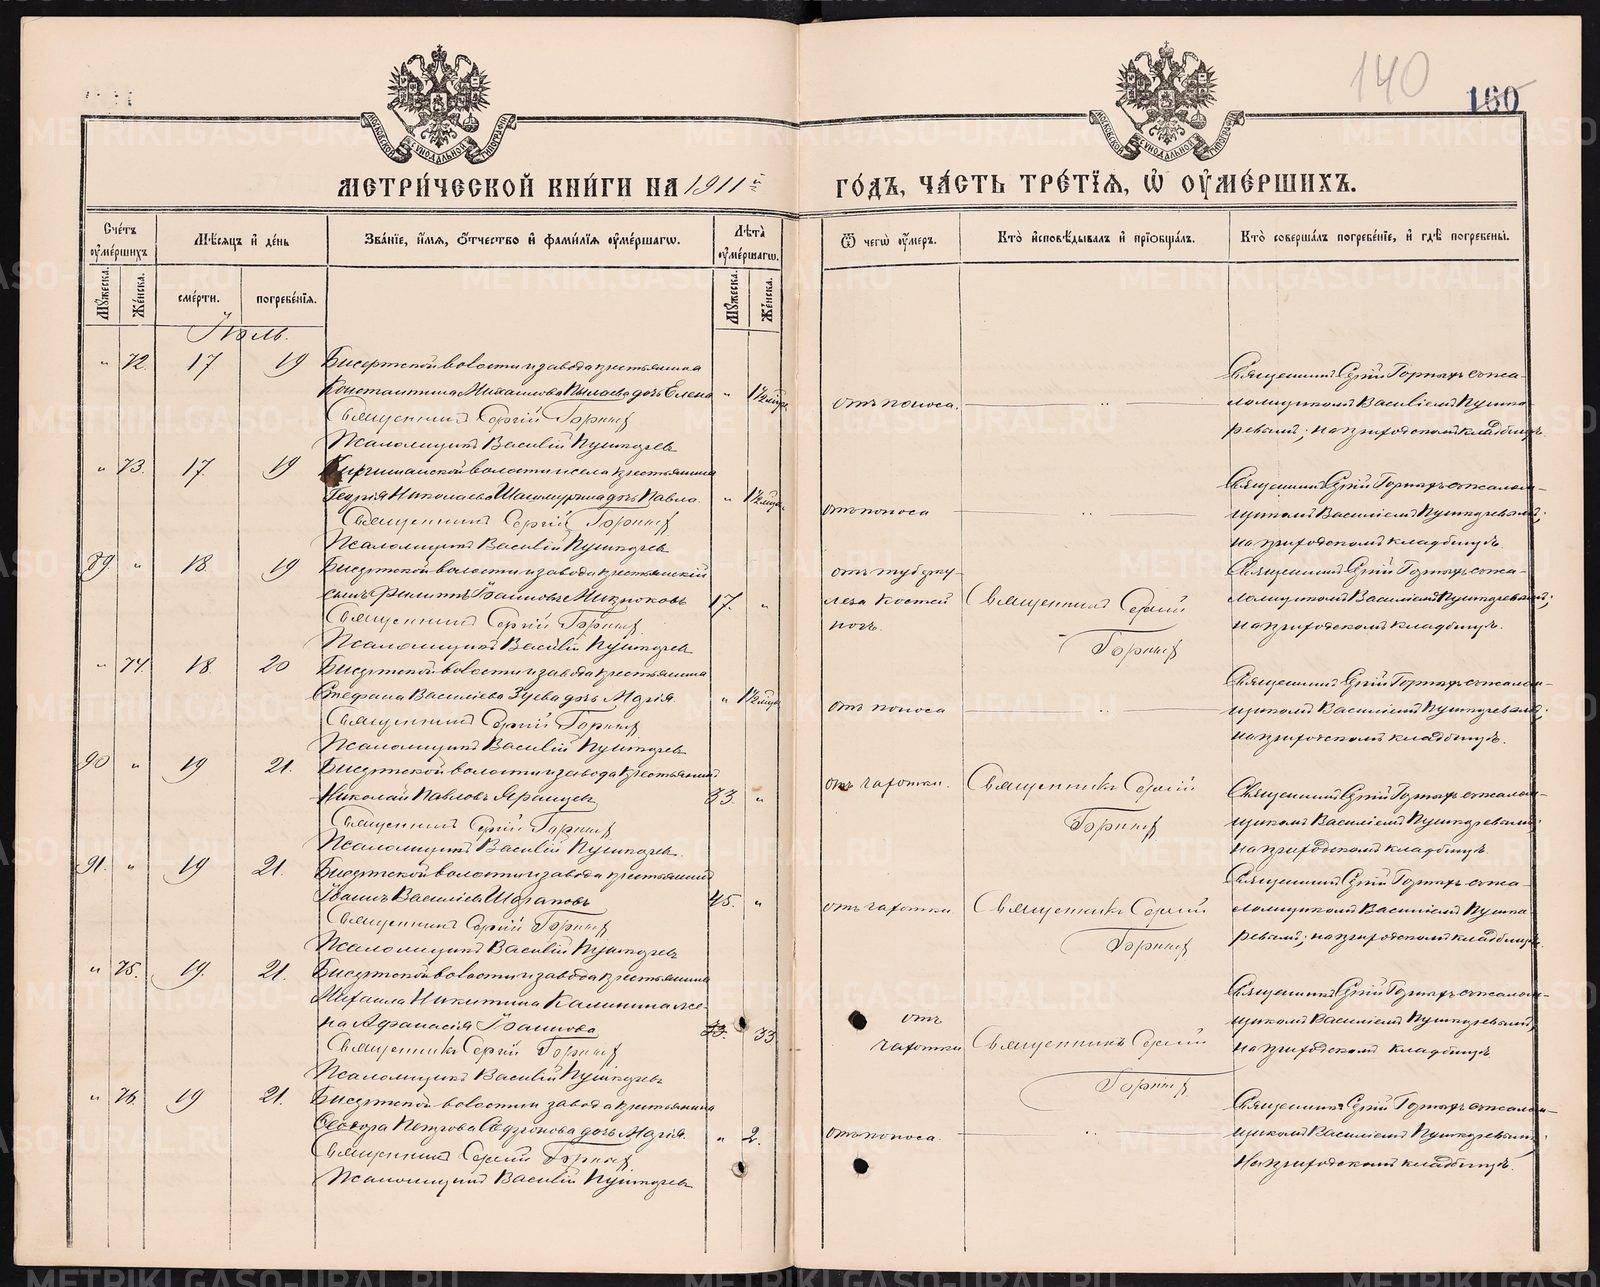 140
160
МОСКОВСКОЙ СѴНОДАЛЬНОЙ ТИПОГРАФІИ
МОСКОВСКОЙ СѴНОДАЛЬНОЙ ТИПОГРАФІИ
МЕТРИ́ЧЕСКОЙ КНИ́ГИ НА 1911й
ГО́ДЪ, ЧА́СТЬ ТРЕ́ТЇѦ, Ѽ ОУ҆МЕ́РШИХЪ.
Счетъ оумершихъ
Мѣсяцъ и день
Званіе, имя, отчество и фамилія оумершаго.
Лѣта оумершаго.
Ѿ чего оумеръ.
Кто исповѣдывалъ и пріобщалъ.
Кто совершалъ погребеніе, и гдѣ погребены.
Мужеска.
Женска.
смерти.
погребенія.
Мужеска.
Женска.
Іюль.
" 72. 17 19 Бисертской волости и завода крестьянина
Константина Михаилова Пылаева дочь Елена " 1½ мѣсяц.
Священникъ Сергій Горныхъ
Псаломщикъ Василій Пушкаревъ
отъ поноса. "
Священникъ Сергій Горныхъ съ пса-
ломщикомъ Василіемъ Пушка-
ревымъ; на приходскомъ кладбищѣ.
" 73. 17. 19 Киргишанской волости и села крестьянина
Георгія Николаева дочь Павла. " 1½ мѣсяц.
Священникъ Сергій Горныхъ
Псаломщикъ Василій Пушкаревъ
отъ поноса "
Священникъ Сергій Горныхъ съ псалом-
щикомъ Василіемъ Пушкаревымъ;
на приходскомъ кладбищѣ.
89. " 18. 19 Бисертской волости и завода крестьянскій
сынъ Филиппъ Іоанновъ Мизюковъ 17. "
Священникъ Сергій Горныхъ
Псаломщикъ Василій Пушкаревъ
отъ туберку-
леза костей
ногъ.
Священникъ Сергій
Горныхъ
Священникъ Сергій Горныхъ съ пса-
ломщикомъ Василіемъ Пушкаревымъ;
на приходскомъ кладбищѣ.
" 74. 18. 20 Бисертской волости и завода крестьянина
Стефана Василіева Зуева дочь Марія. " 1½ мѣсяц.
Священникъ Сергій Горныхъ
Псаломщикъ Василій Пушкаревъ
отъ поноса "
Священникъ Сергій Горныхъ съ псалом-
щикомъ Василіемъ Пушкаревымъ;
на приходскомъ кладбищѣ.
90 " 19 21. Бисертской волости и завода крестьянинъ
Николай Павловъ Яранцевъ 33. "
Священникъ Сергій Горныхъ
Псаломщикъ Василій Пушкаревъ.
отъ чахотки.
Священникъ Сергій
Горныхъ
Священникъ Сергій Горныхъ съ псалом-
щикомъ Василіемъ Пушкаревымъ;
на приходскомъ кладбищѣ.
91. " 19 21. Бисертской волости и завода крестьянинъ
Іоаннъ Василіевъ Шараповъ 45. "
Священникъ Сергій Горныхъ
Псаломщикъ Василій Пушкаревъ
отъ чахотки
Священникъ Сергій
Горныхъ
Священникъ Сергій Горныхъ съ пса-
ломщикомъ Василіемъ Пушка-
ревымъ; на приходскомъ кладбищѣ.
" 75. 19. 21. Бисертской волости и завода крестьянина
Михаила Никитина Калинина же-
на Афанасія Іоаннова 33. 33
Священникъ Сергій Горныхъ
Псаломщикъ Василій Пушкаревъ
отъ
чахотки
Священникъ Сергій
Горныхъ
Священникъ Сергій Горныхъ съ псалом-
щикомъ Василіемъ Пушкаревымъ;
на приходскомъ кладбищѣ
" 76. 19 21. Бисертской волости и завода крестьянина
Ѳеодора Петрова Сафронова дочь Марія. " 2.
Священникъ Сергій Горныхъ
Псаломщикъ Василій Пушкаревъ
отъ поноса. "
Священникъ Сергій Горныхъ съ псалом-
щикомъ Василіемъ Пушкаревымъ;
на приходскомъ кладбищѣ.
METRIKI.GASO-URAL.RU